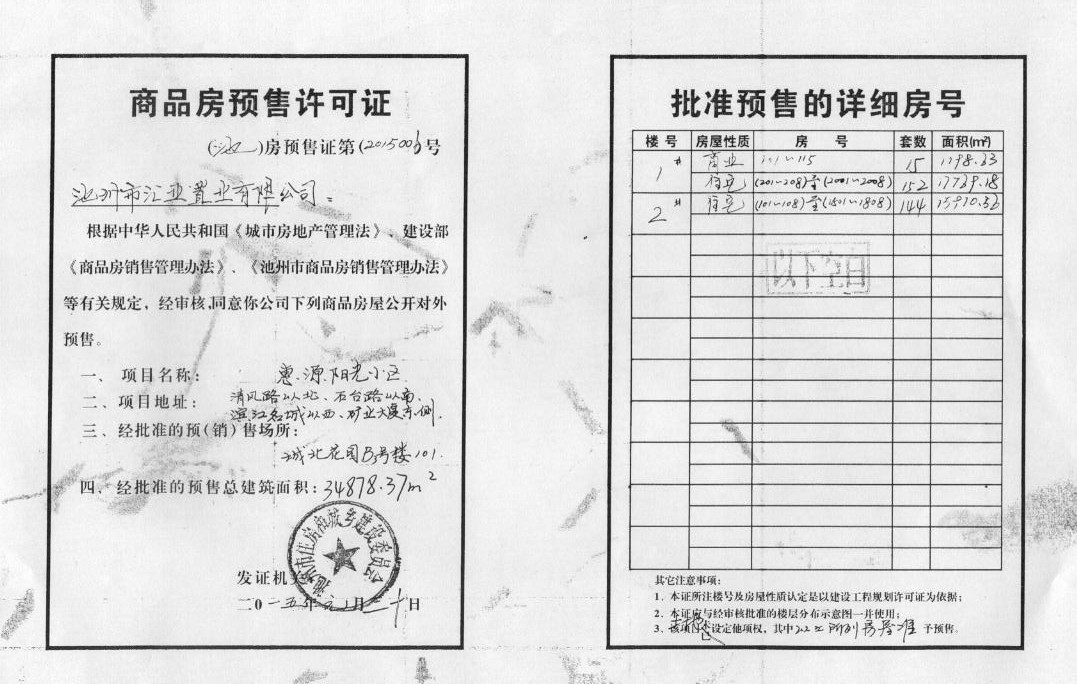 商品房预售许可证
(池)房预售证第(2015006)号
池州市汇业置业有限公司:
根据中华人民共和国《城市房地产管理法》、建设部
《商品房销售管理办法》、《池州市商品房销售管理办法》
等有关规定，经审核,同意你公司下列商品房屋公开对外
预售。
一、项目名称: 惠源.阳光小区.
二、项目地址: 清风路以北、石台路以南、
滨江名城以西、矿业大厦东侧.
三、经批准的预(销)售场所:
城北花园B3号楼101.
四、经批准的预售总建筑面积: 34878.37m²
池州市住房和城乡建设委员会
发证机关
二0一五年 月二十日
批准预售的详细房号
楼号 房屋性质 房号 套数 面积(㎡)
1# 商业 101~115 15 1198.33
住宅 (201~208)至(2001~2008) 152 17739.18
2# 住宅 (101~108)至(1801~1808) 144 15910.36
以下空白
其它注意事项:
1、本证所注楼号及房屋性质认定是以建设工程规划许可证为依据;
2、本证应与经审核批准的楼层分布示意图一并使用;
3、该项目未设定他项权，其中 所列房屋准予预售。